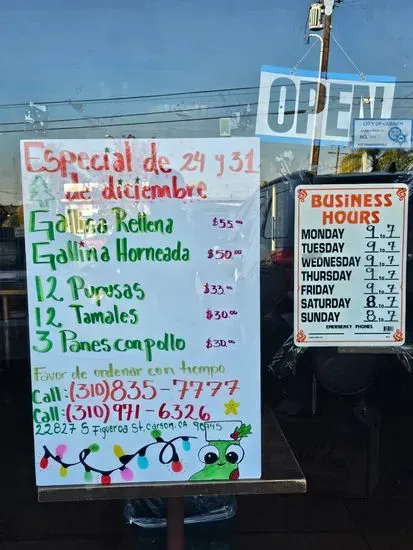 OPEN
CITY OF CARSON
Especial de 24 y 31
de diciembre
Gallina Rellena $55.00
Gallina Horneada $50.00
12 Pupusas $33.00
12 Tamales $30.00
3 Panes con pollo $30.00
Favor de ordenar con tiempo
Call: (310) 835-7777
Call: (310) 971-6326
22827 S Figueroa St, Carson, CA 90745
BUSINESS
HOURS
MONDAY 9 to 7
TUESDAY 9 to 7
WEDNESDAY 9 to 7
THURSDAY 9 to 7
FRIDAY 9 to 7
SATURDAY 8 to 7
SUNDAY 8 to 7
EMERGENCY PHONES